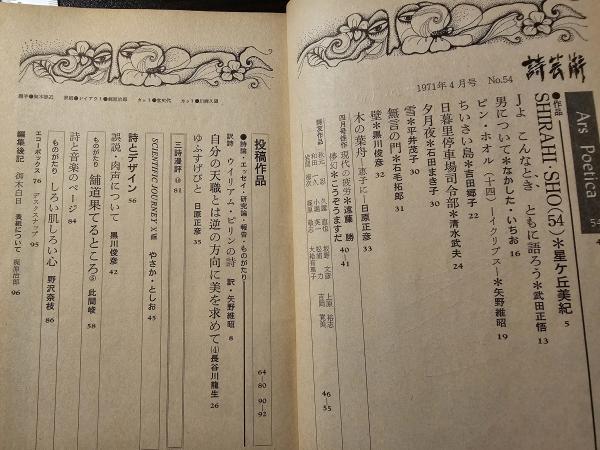 詩芸術
1971年4月号 No.54
Ars Poetica
54
●作品
SHIRAHI・SHO(54)＊星ケ丘美紀 5
Jよ こんなとき ともに語ろう＊武田正悟 13
男について＊なかした・いちお 16
ピン・ホオル〈十四〉―イクリプス―＊矢野維昭 19
ちいさい島＊吉田郷子 22
日暮里停車場司令部＊清水武夫 24
夕月夜＊石田まき子 30
雪＊平井茂子 30
無言の門＊石毛拓郎 31
壁＊黒川俊彦 32
木の葉舟―恵子に―日原正彦 33
四月号佳作 現代の疲労＊遠藤勝 40
修幻＊こうぞうますだ 41
投稿作品
64―80 90―92
●詩論・エッセイ・研究論・報告・ものがたり
訳詩 ウイリアム・ピリンの詩 訳・矢野維昭 8
自分の天職とは逆の方向に美を求めて(4)長谷川龍生 26
ゆふすげびと 日原正彦 35
三詩漫評 ⑩ 81
SCIENTIFIC JOURNEY X 森 やさか・としお 45
詩とデザイン 56
誤説・肉声について 黒川俊彦 42
ものがたり 舗道果てるところ⑤ 此間岐 58
詩と音楽のページ 84
ものがたり しろい肌しろい心 野沢奈枝 86
エコーボックス 76 デスクスナップ 95
編集後記 御木白日 表紙について 梶原治郎 96
46―55